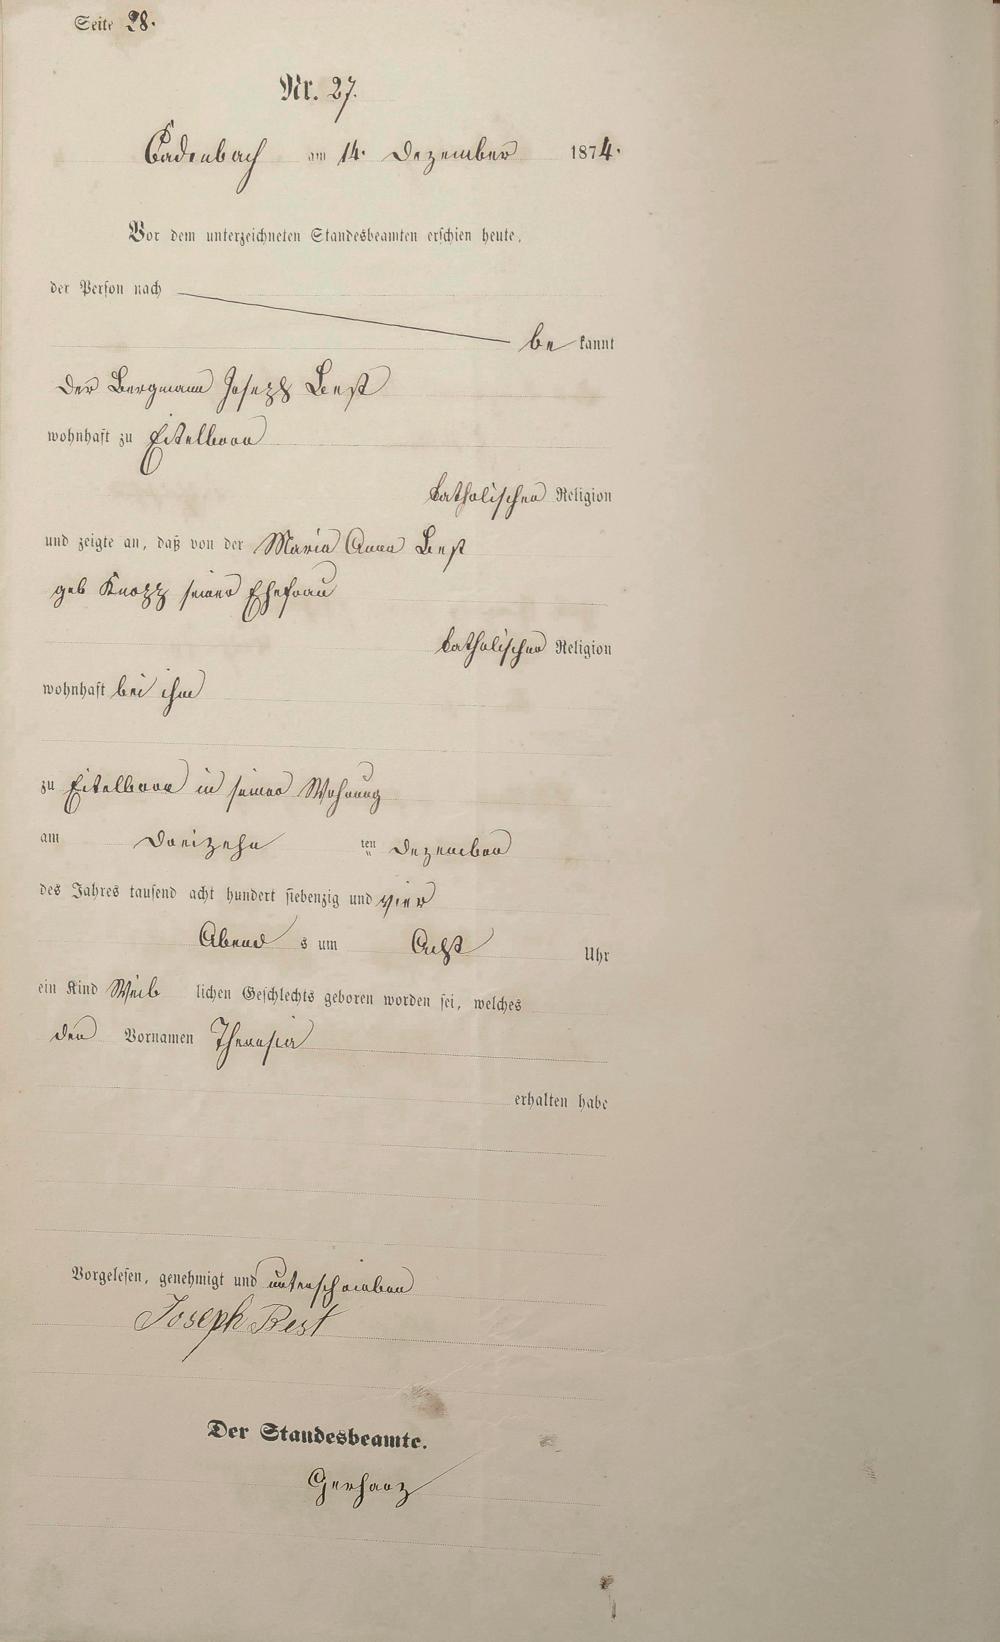 Seite 28.
Nr. 27.
Cadenbach am 14. Dezember 1874.
Vor dem unterzeichneten Standesbeamten erschien heute,
der Person nach
be kannt
der Bergmann Joseph Best
wohnhaft zu Eitelborn
katholischer Religion
und zeigte an, daß von der Maria Anna Best
geb Knopp seiner Ehefrau
katholischer Religion
wohnhaft bei ihm
zu Eitelborn in seiner Wohnung
am dreizehn ten Dezember
des Jahres tausend acht hundert siebenzig und vier
Abend s um Acht Uhr
ein Kind Weib lichen Geschlechts geboren worden sei, welches
den Vornamen Theresia
erhalten habe
Vorgelesen, genehmigt und unterschrieben
Joseph Best
Der Standesbeamte.
Gerharz